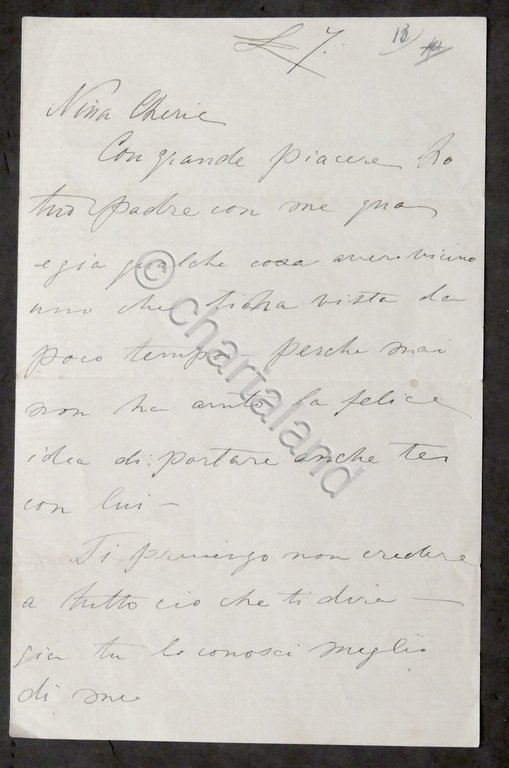 L 7.
13
Nina Cherie
Con grande piacere ho
tuo padre con me qua
e gia qualche cosa avere vicino
uno che ti ha vista da
poco tempo - perche mai
non ha avuto la felice
idea di portare anche te
con lui -
Ti prevengo non credere
a tutto cio che ti dira -
gia tu lo conosci meglio
di me
© chartaland